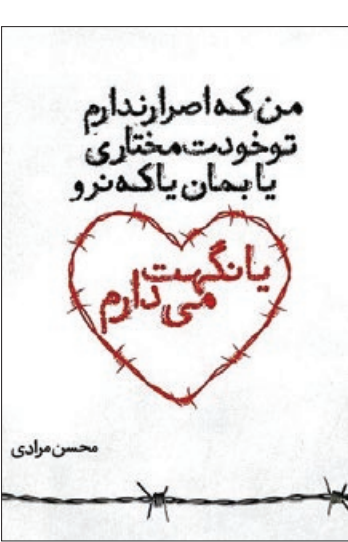 من که اصرار ندارم
تو خودت مختاری
یا بمان یا که نرو
یا نگهت
می دارم
محسن مرادی